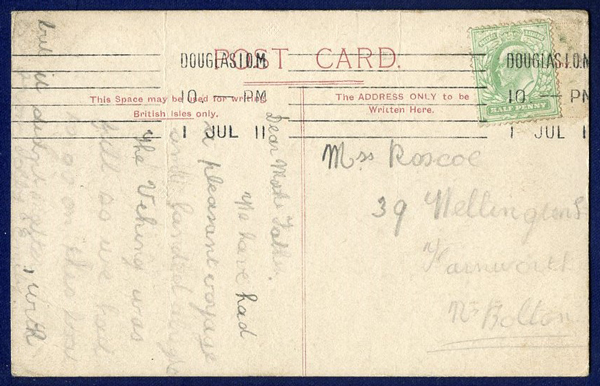 POST CARD.
DOUGLAS I.O.M
10 — PM
1 JUL 11
DOUGLAS I.O.M
10 — PM
1 JUL 11
HALF PENNY
This Space may be used for
British Isles only.
The ADDRESS ONLY to be
Written Here.
Mrs Roscoe
39 Wellington St
Farnworth
Nr Bolton
Dear
We have had
a pleasant voyage
and landed
The Viking was
full so we had
to on this
but it
with